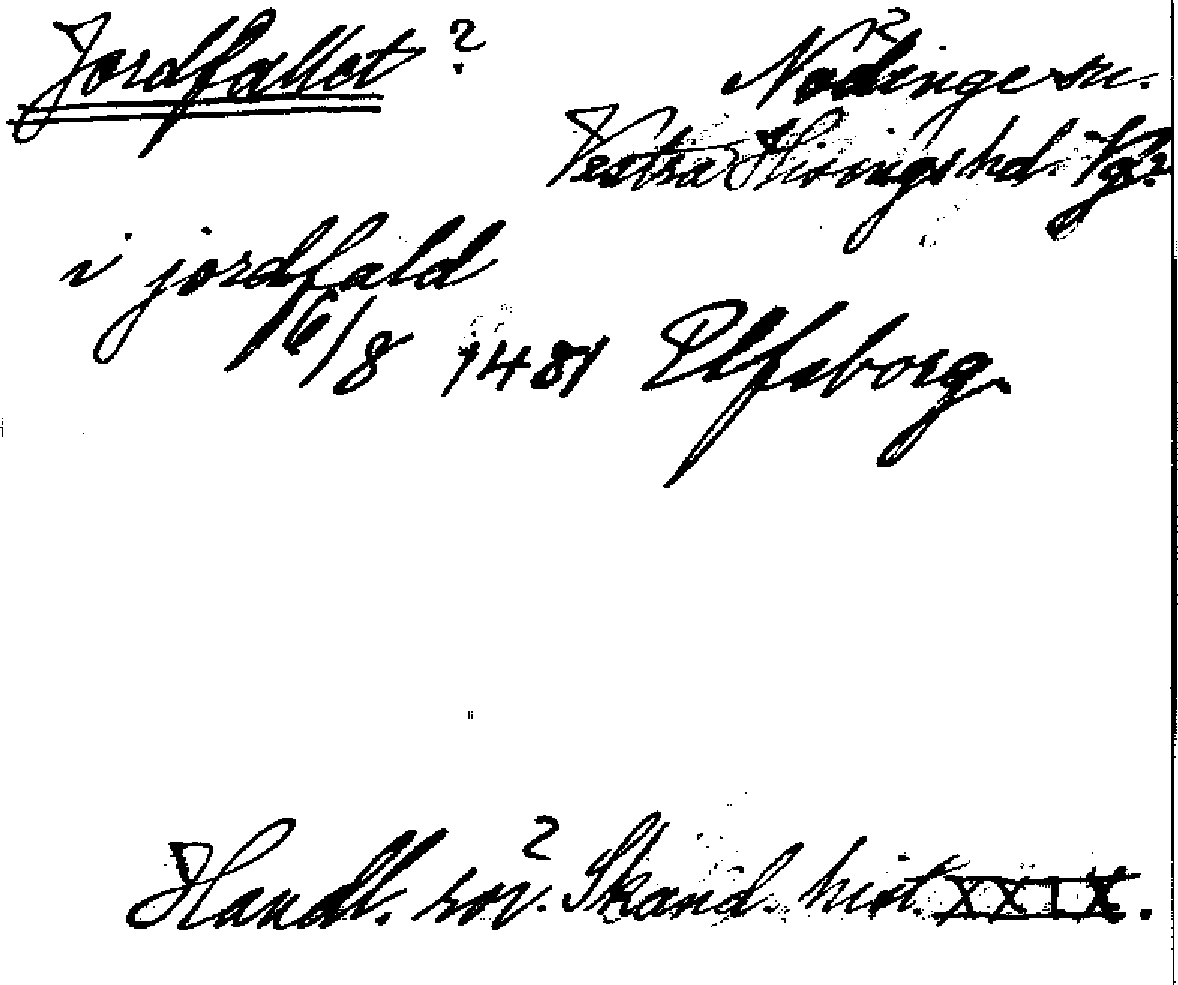 Jordfallet?
Nödinge sn.
Vestra Hisings hd. Vg.
i jordfald
16/8 1481 Elfsborg.
Handl. rör. Skand. hist. XXIX.